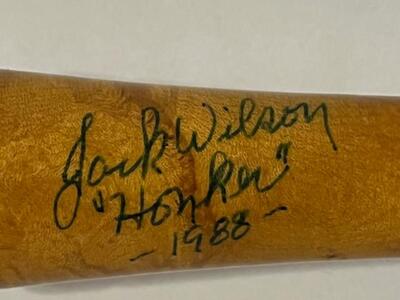 Jack Wilson
"Honker"
- 1988 -